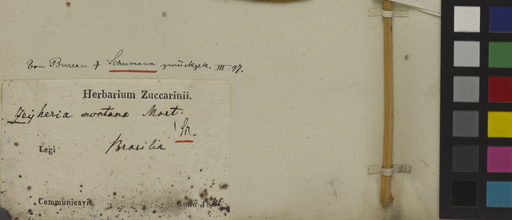 Von Bureau & Schumann zurückgek. III. 97.
Herbarium Zuccarinii.
Zeyheria montana Mart.
! Sch.
Legi Brasilia
Communicavit anno 18